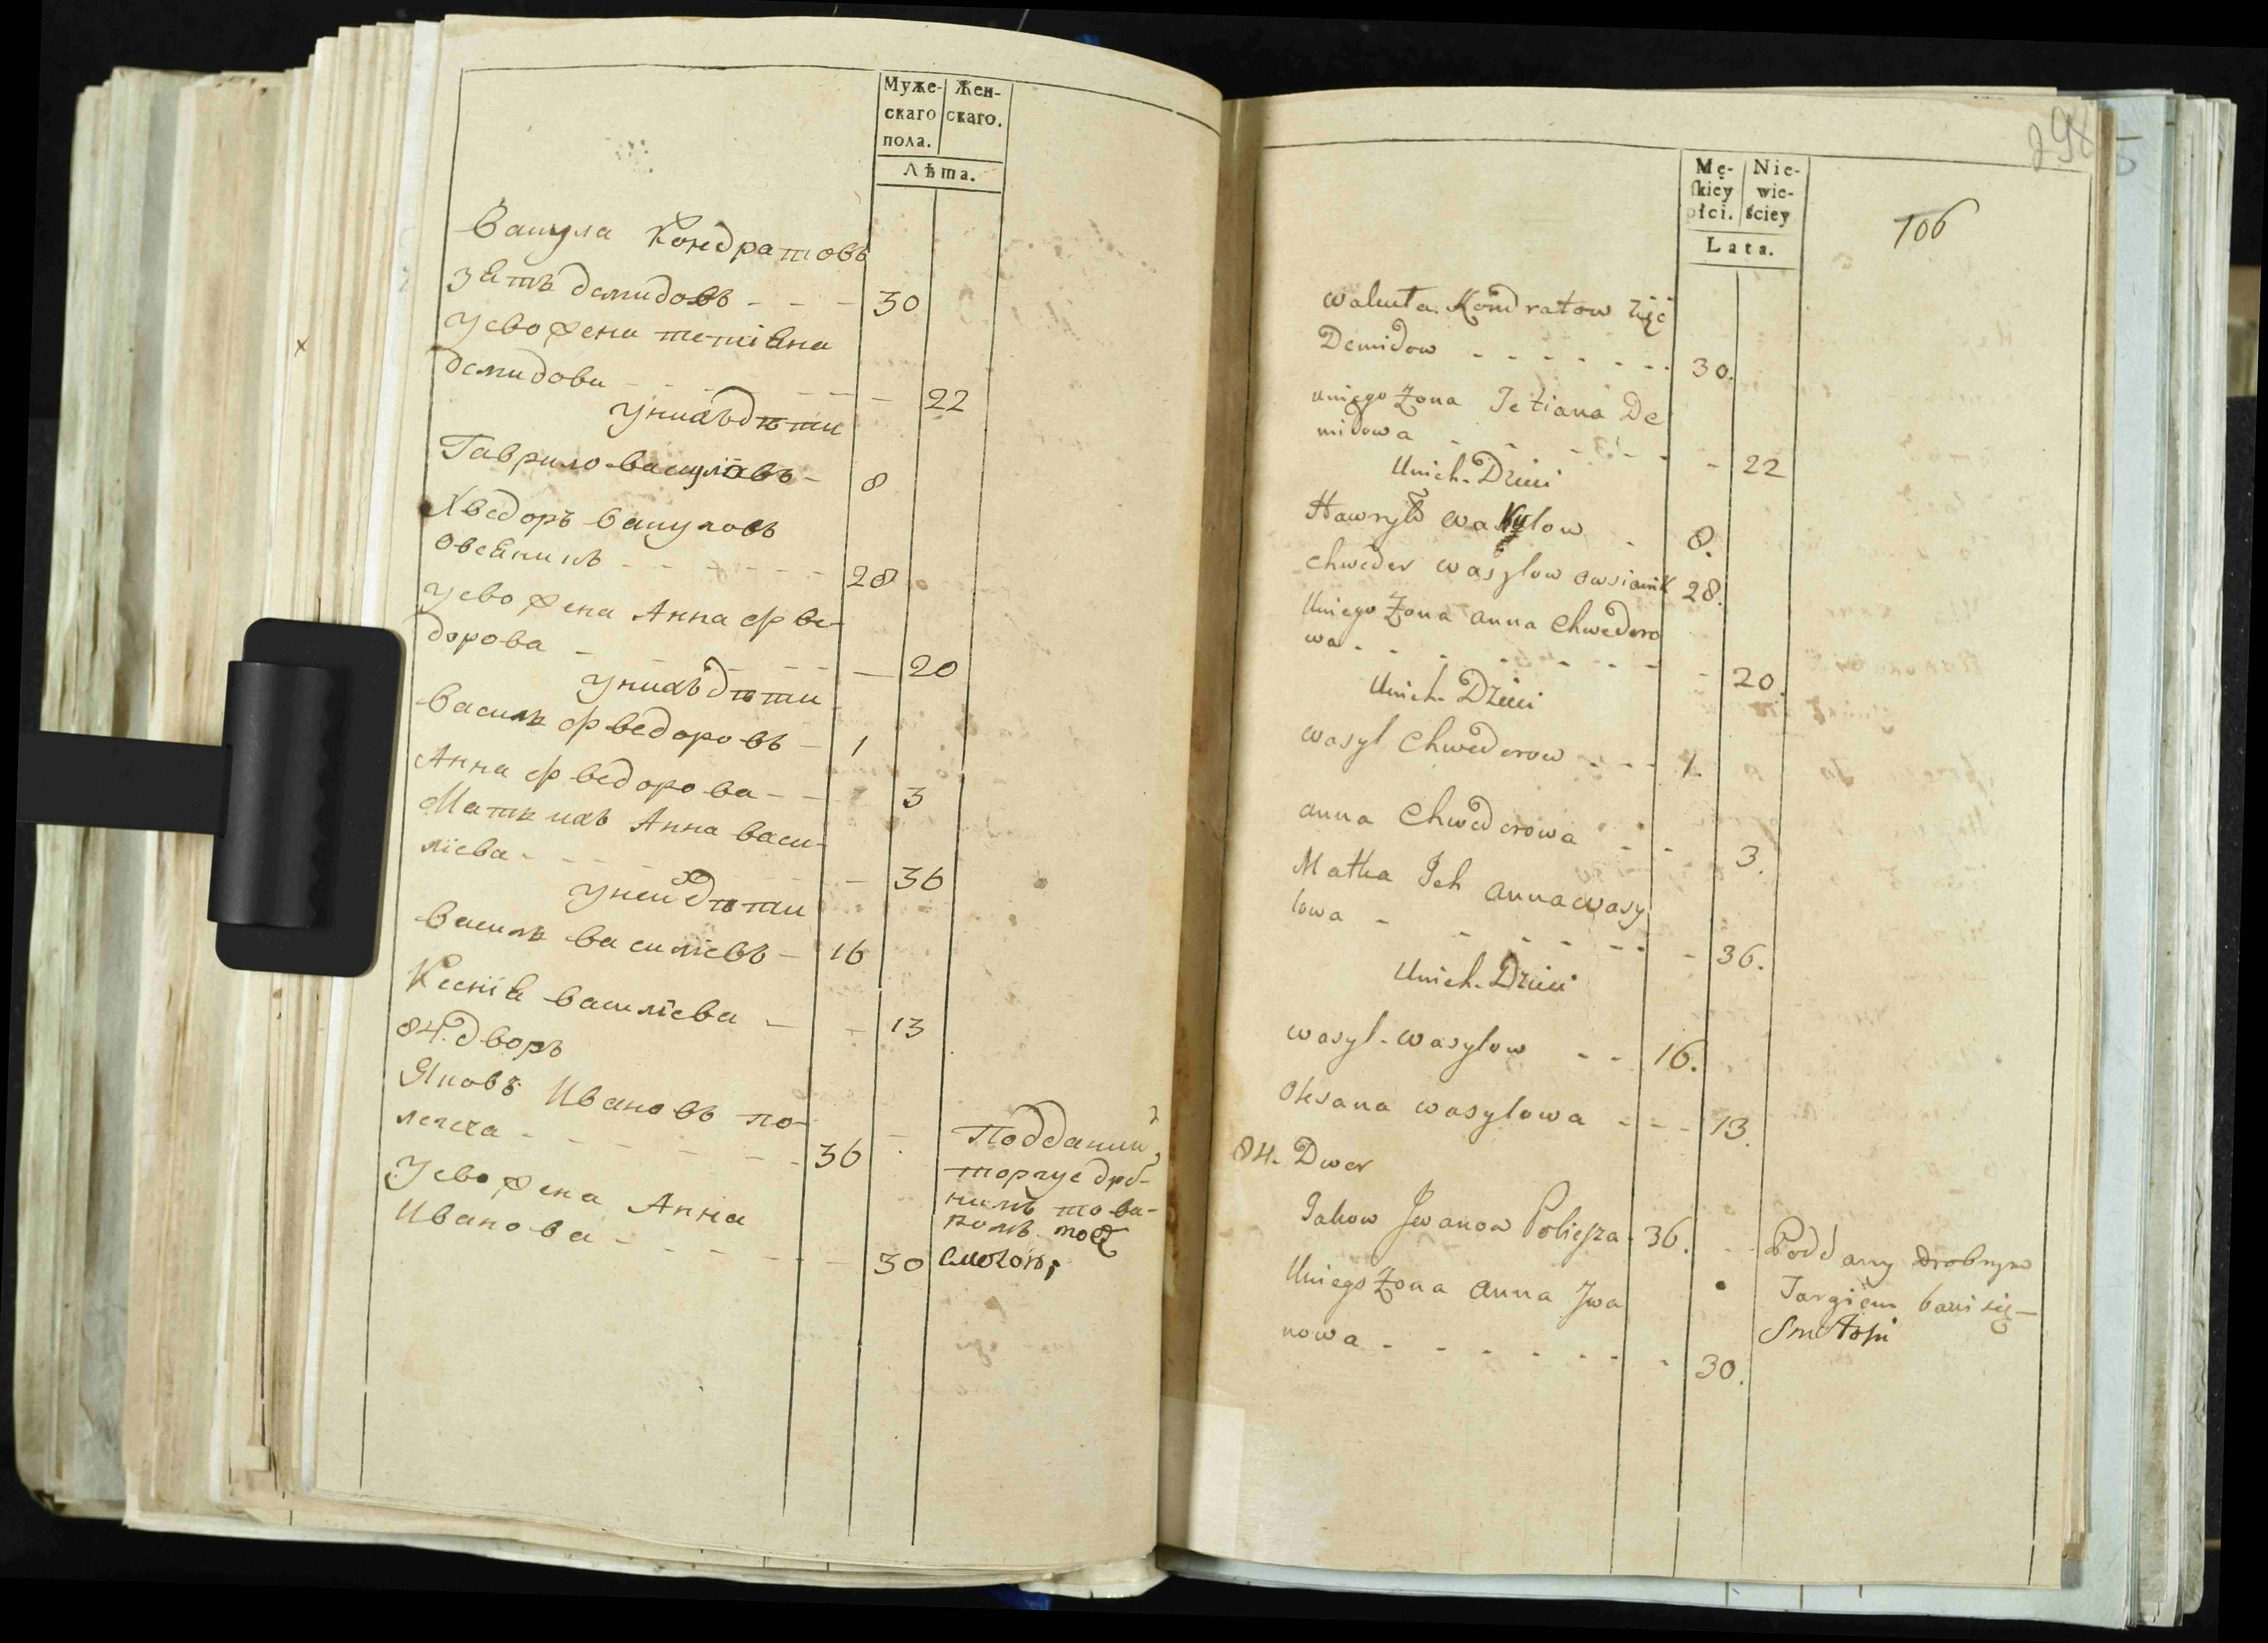 Муже-
скаго
пола.
Жен-
скаго.
Лѣта.
Вакула Кондратовъ
зять демидовъ - - - 30
у ево жена тетіяна
демидова - - - - 22
у нихъ дѣти
Гаврило вакуловъ - 8
Хведоръ вакуловъ
овсяникъ - - - - 28
у ево жена Анна Фве-
дорова - - - - 20
у нихъ дѣти
Василь Фведоровъ - 1
Анна Фведорова - - 3
Матиь ихъ Анна васи-
ліева - - - - 36
у ней дѣти
Василь василіевъ - 16
Ксенія василіева - - 13
84. дворъ
Яковъ Ивановъ по-
легеча - - - - 36
у ево жена Анна
Иванова - - - - 30
Подданий
торгуе дрб-
нимъ това-
ромъ
298
Mę-
skiey
płci.
Nie-
wie-
ściey
Lata.
106
Wakuła Kondratow zięć
Demidow - - - - - - 30.
u niego Żona Tetiana De
midowa - - - - - 22
U nich Dzieci
Hawryło Wakułow - 8.
Chweder Wasylow Owsianik 28.
U niego Żona Anna Chwedoro
wa - - - - - - 20.
U nich Dzieci
Wasyl Chwederow - - - 1.
Anna Chwederowa - - - 3.
Matka Ich Anna Wasy
lowa - - - - - - 36.
U nich Dzieci
Wasyl Wasylow - - 16.
Oksana Wasylowa - - - 13.
84. Dwor
Jakow Jwanow Poliesza 36.
U niego Żona Anna Jwa
nowa - - - - - - 30.
Poddany Drobnym
Targiem bawi się